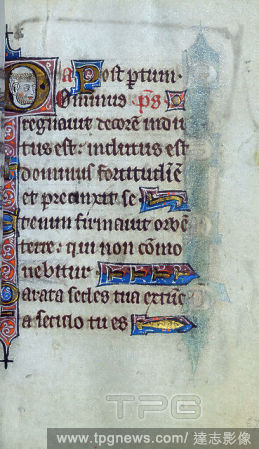 a Post ptum.
Dominus ps
regnauit decorē indu
tus est: indutus est
dominus fortitudīē
et precinxit se
tenim firmauit orbē
terre: qui non cōmo
uebitur.
arata sedes tua ex tūc
a seculo tu es
TPG
www.tpgnews.com/ 達志影像